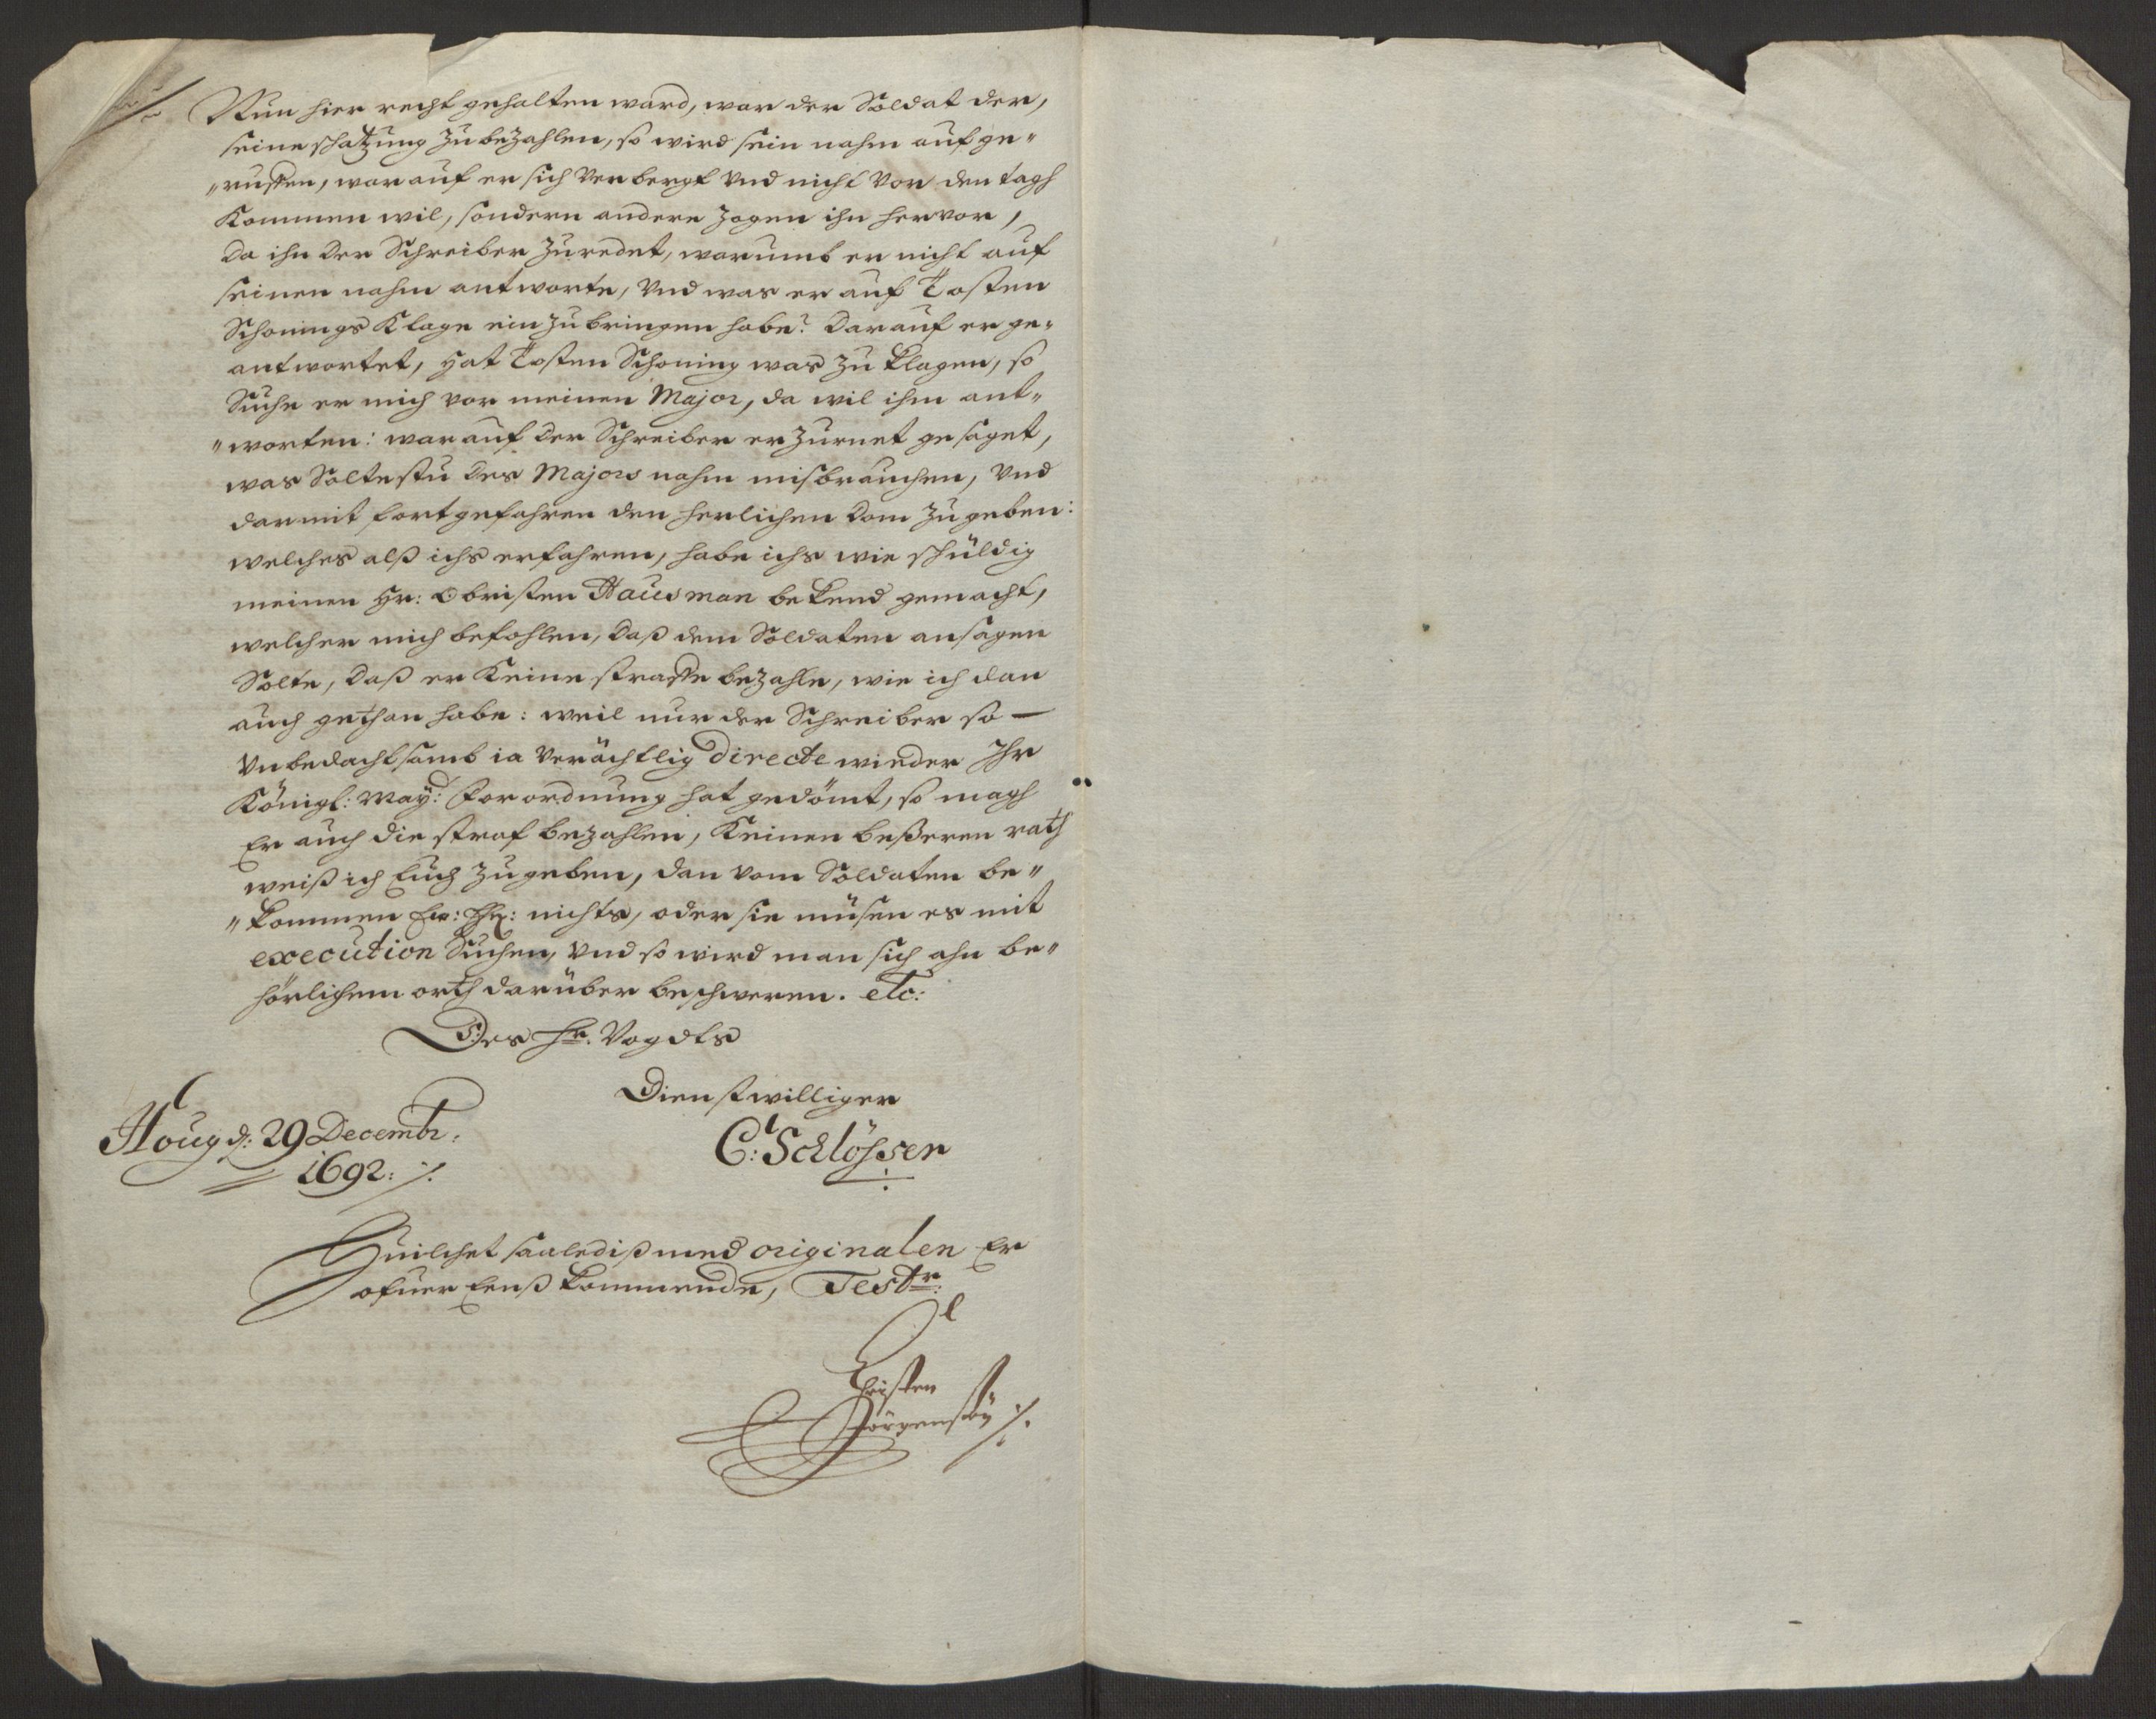 Nun hier recht gehalten ward, war der Soldat der,
seine schatzung zu bezahlen, so wird sein nahm auf ge„
„ruffen, war auf er sich verbergt Vnd nicht Vor den tagh
Kommen wil, sondern andere zogen ihn hervor,
Da ihn der Schreiber zuredet, warumb er nicht auf
seinen nahm antworte, Vnd was er auf Tosten
Schonings Klage ein zu bringen habe? Darauf er ge„
antwortet, Hat Tosten Schoning was zu klagen, so
Suche er mich vor meinen Major, da wil ihm ant„
„worten: war auf der Schreiber erzurnet gesaget,
was Soltestu des Majors nahm misbrauchen, Vnd
darmit fortgefahren den herlichen Dom zu geben:
welches alß ichs erfahren, habe ichs wie schuldig
meinen Hr: Obristen Hausman bekend gemacht,
welcher mich befohlen, Daß dem Soldaten ansagen
Solte, Daß er Keine straffe bezahle, wie ich dan
auch gethan habe: weil nur der Schreiber so —
Vnbedachtsamb ia Verächtlig directe wieder Ihr
Königl: May: Forordnung hat gedömt, so magh
Er auch die straf bezahlen, Keinen beßeren rath
weiß ich Euch zu geben, dan vom Soldaten be„
„kommen Ew: nichts, oder sie müsen es mit
execution Suchen, Vnd so wird man sich ahn be„
hörlichem orth darüber beschweren. etc:
Des Hr. Vogdts
Dienstwilliger
Houg d: 29 Decembr:
C: Schlösser
1692: ./.
Huilchet saalediß med originalen Er
ofuer Eenß kommende, Testr:
Christen
Jörgensøn ./.